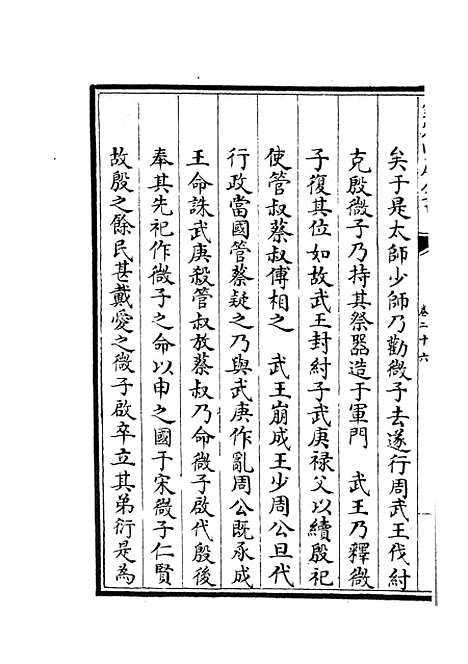 卷二十六
矣于是太師少師乃勸微子去遂行周武王伐紂
克殷微子乃持其祭器造于軍門　武王乃釋微
子復其位如故武王封紂子武庚禄父以續殷祀
使管叔蔡叔傅相之　武王崩成王少周公旦代
行政當國管蔡疑之乃與武庚作亂周公既承成
王命誅武庚殺管叔放蔡叔乃命微子啟代殷後
奉其先祀作微子之命以申之國于宋微子仁賢
故殷之餘民甚戴愛之微子啟卒立其弟衍是為